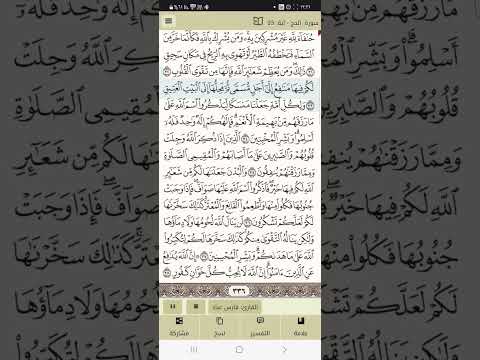 سورة الحج - آية: 33
حُنَفَآءَ لِلَّهِ غَيْرَ مُشْرِكِينَ بِهِۦ وَمَن يُشْرِكْ بِٱللَّهِ فَكَأَنَّمَا خَرَّ مِنَ
ٱلسَّمَآءِ فَتَخْطَفُهُ ٱلطَّيْرُ أَوْ تَهْوِى بِهِ ٱلرِّيحُ فِى مَكَانٍ سَحِيقٍ
٣١ ذَٰلِكَ وَمَن يُعَظِّمْ شَعَٰٓئِرَ ٱللَّهِ فَإِنَّهَا مِن تَقْوَى ٱلْقُلُوبِ ٣٢
لَكُمْ فِيهَا مَنَٰفِعُ إِلَىٰٓ أَجَلٍ مُّسَمًّى ثُمَّ مَحِلُّهَآ إِلَى ٱلْبَيْتِ ٱلْعَتِيقِ
٣٣ وَلِكُلِّ أُمَّةٍ جَعَلْنَا مَنسَكًا لِّيَذْكُرُوا۟ ٱسْمَ ٱللَّهِ عَلَىٰ
مَا رَزَقَهُم مِّنۢ بَهِيمَةِ ٱلْأَنْعَٰمِ فَإِلَٰهُكُمْ إِلَٰهٌ وَٰحِدٌ فَلَهُۥٓ
أَسْلِمُوا۟ وَبَشِّرِ ٱلْمُخْبِتِينَ ٣٤ ٱلَّذِينَ إِذَا ذُكِرَ ٱللَّهُ وَجِلَتْ
قُلُوبُهُمْ وَٱلصَّٰبِرِينَ عَلَىٰ مَآ أَصَابَهُمْ وَٱلْمُقِيمِى ٱلصَّلَوٰةِ
وَمِمَّا رَزَقْنَٰهُمْ يُنفِقُونَ ٣٥ وَٱلْبُدْنَ جَعَلْنَٰهَا لَكُم مِّن شَعَٰٓئِرِ
ٱللَّهِ لَكُمْ فِيهَا خَيْرٌ فَٱذْكُرُوا۟ ٱسْمَ ٱللَّهِ عَلَيْهَا صَوَآفَّ فَإِذَا وَجَبَتْ
جُنُوبُهَا فَكُلُوا۟ مِنْهَا وَأَطْعِمُوا۟ ٱلْقَانِعَ وَٱلْمُعْتَرَّ كَذَٰلِكَ سَخَّرْنَٰهَا
لَكُمْ لَعَلَّكُمْ تَشْكُرُونَ ٣٦ لَن يَنَالَ ٱللَّهَ لُحُومُهَا وَلَا دِمَآؤُهَا
وَلَٰكِن يَنَالُهُ ٱلتَّقْوَىٰ مِنكُمْ كَذَٰلِكَ سَخَّرَهَا لَكُمْ لِتُكَبِّرُوا۟
ٱللَّهَ عَلَىٰ مَا هَدَىٰكُمْ وَبَشِّرِ ٱلْمُحْسِنِينَ ٣٧ إِنَّ ٱللَّهَ يُدَٰفِعُ
عَنِ ٱلَّذِينَ ءَامَنُوٓا۟ إِنَّ ٱللَّهَ لَا يُحِبُّ كُلَّ خَوَّانٍ كَفُورٍ ٣٨
٣٣٦
القارئ: فارس عباد
علامة
التفسير
نسخ
مشاركة